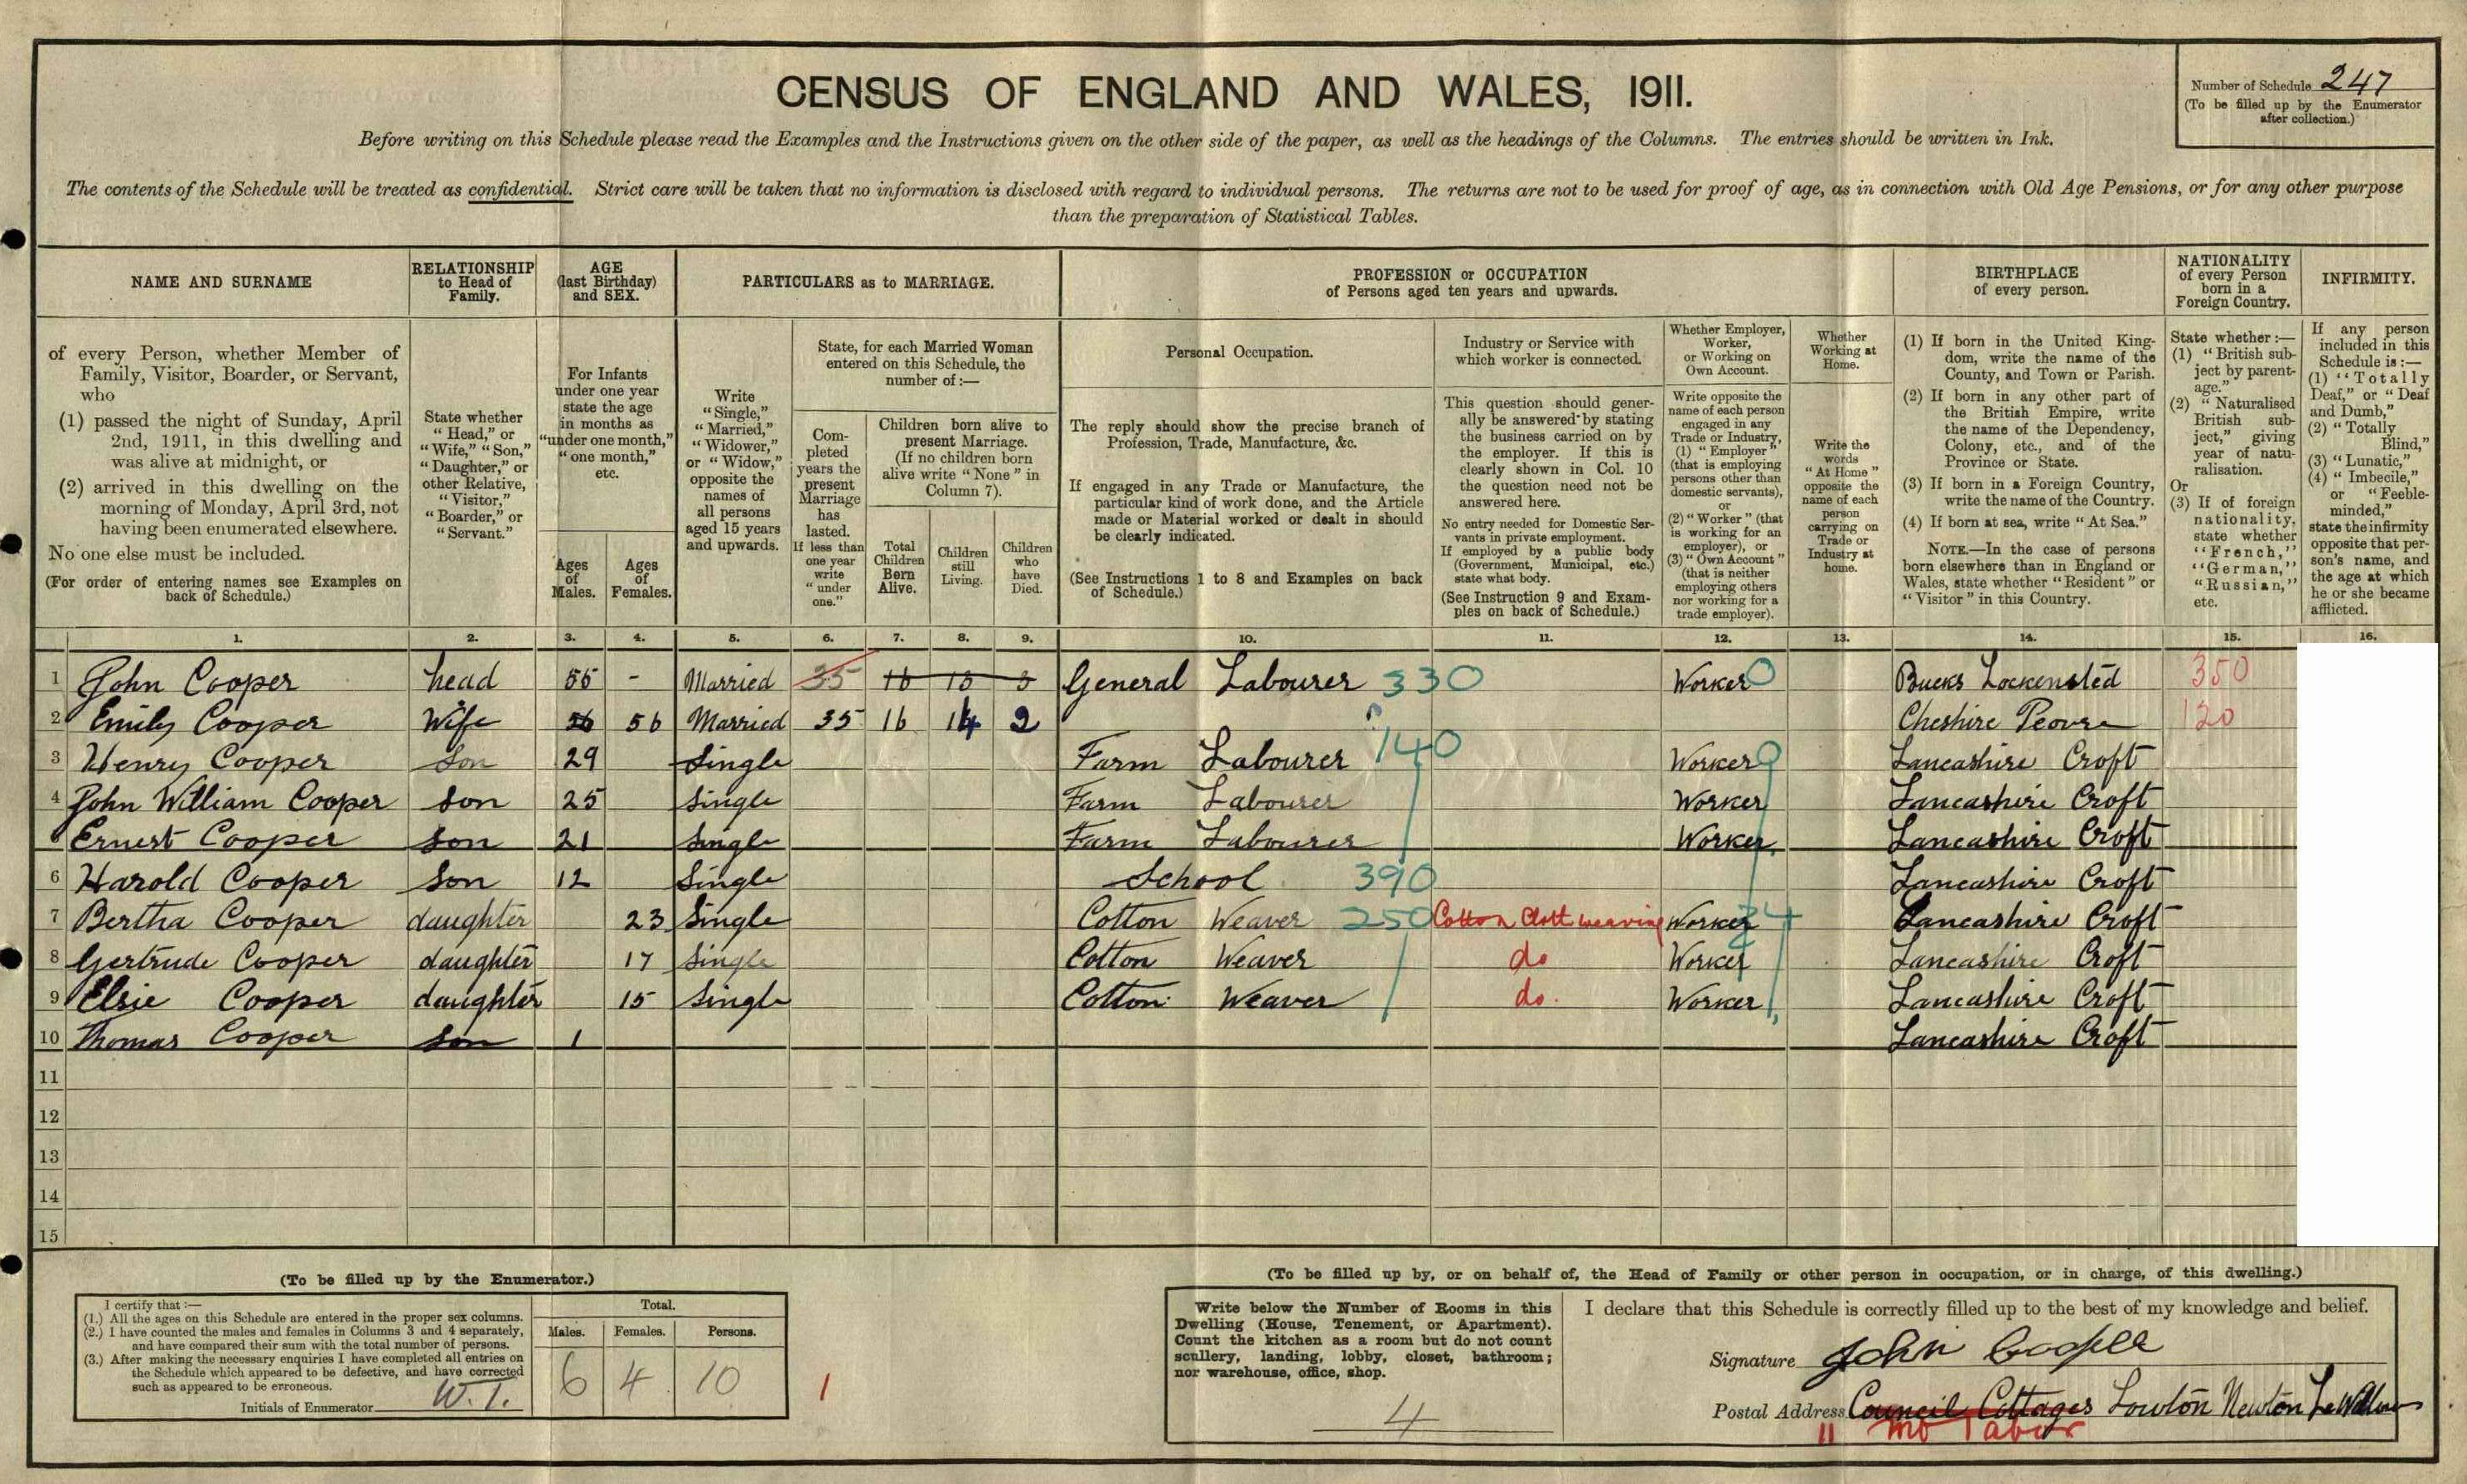 CENSUS OF ENGLAND AND WALES, 1911.
Number of Schedule 247
(To be filled up by the Enumerator
after collection.)
Before writing on this Schedule please read the Examples and the Instructions given on the other side of the paper, as well as the headings of the Columns. The entries should be written in Ink.
The contents of the Schedule will be treated as confidential. Strict care will be taken that no information is disclosed with regard to individual persons. The returns are not to be used for proof of age, as in connection with Old Age Pensions, or for any other purpose
than the preparation of Statistical Tables.
NAME AND SURNAME
of every Person, whether Member of
Family, Visitor, Boarder, or Servant,
who
(1) passed the night of Sunday, April
2nd, 1911, in this dwelling and
was alive at midnight, or
(2) arrived in this dwelling on the
morning of Monday, April 3rd, not
having been enumerated elsewhere.
No one else must be included.
(For order of entering names see Examples on
back of Schedule.)
RELATIONSHIP
to Head of
Family.
State whether
"Head," or
"Wife," "Son,"
"Daughter," or
other Relative,
"Visitor,"
"Boarder," or
"Servant."
AGE
(last Birthday)
and SEX.
For Infants
under one year
state the age
in months as
"under one month,"
"one month,"
etc.
Ages
of
Males.
Ages
of
Females.
PARTICULARS as to MARRIAGE.
Write
"Single,"
"Married,"
"Widower,"
or "Widow,"
opposite the
names of
all persons
aged 15 years
and upwards.
State, for each Married Woman
entered on this Schedule, the
number of :—
Com-
pleted
years the
present
Marriage
has
lasted.
If less than
one year
write
"under
one."
Children born alive to
present Marriage.
(If no children born
alive write "None" in
Column 7).
Total
Children
Born
Alive.
Children
still
Living.
Children
who
have
Died.
PROFESSION or OCCUPATION
of Persons aged ten years and upwards.
Personal Occupation.
The reply should show the precise branch of
Profession, Trade, Manufacture, &c.
If engaged in any Trade or Manufacture, the
particular kind of work done, and the Article
made or Material worked or dealt in should
be clearly indicated.
(See Instructions 1 to 8 and Examples on back
of Schedule.)
Industry or Service with
which worker is connected.
This question should gener-
ally be answered by stating
the business carried on by
the employer. If this is
clearly shown in Col. 10
the question need not be
answered here.
No entry needed for Domestic Ser-
vants in private employment.
If employed by a public body
(Government, Municipal, etc.)
state what body.
(See Instruction 9 and Exam-
ples on back of Schedule.)
Whether Employer,
Worker,
or Working on
Own Account.
Write opposite the
name of each person
engaged in any
Trade or Industry,
(1) "Employer"
(that is employing
persons other than
domestic servants),
or
(2) "Worker" (that
is working for an
employer), or
(3) "Own Account"
(that is neither
employing others
nor working for a
trade employer).
Whether
Working at
Home.
Write the
words
"At Home"
opposite the
name of each
person
carrying on
Trade or
Industry at
home.
BIRTHPLACE
of every person.
(1) If born in the United King-
dom, write the name of the
County, and Town or Parish.
(2) If born in any other part of
the British Empire, write
the name of the Dependency,
Colony, etc., and of the
Province or State.
(3) If born in a Foreign Country,
write the name of the Country.
(4) If born at sea, write "At Sea."
NOTE.—In the case of persons
born elsewhere than in England or
Wales, state whether "Resident" or
"Visitor" in this Country.
NATIONALITY
of every Person
born in a
Foreign Country.
State whether :—
(1) "British sub-
ject by parent-
age."
(2) "Naturalised
British sub-
ject," giving
year of natu-
ralisation.
Or
(3) If of foreign
nationality,
state whether
"French,"
"German,"
"Russian,"
etc.
INFIRMITY.
If any person
included in this
Schedule is :—
(1) "Totally
Deaf," or "Deaf
and Dumb,"
(2) "Totally
Blind,"
(3) "Lunatic,"
(4) "Imbecile,"
or "Feeble-
minded,"
state the infirmity
opposite that per-
son's name, and
the age at which
he or she became
afflicted.
1. 2. 3. 4. 5. 6. 7. 8. 9. 10. 11. 12. 13. 14. 15. 16.
1 John Cooper head 55 - Married 35 16 13 3 General Labourer 330 Worker 0 Bucks 350
2 Emily Cooper Wife 56 56 Married 35 16 14 2 Cheshire 120
3 Henry Cooper son 29 Single Farm Labourer 140 Worker 0 Lancashire Croft
4 John William Cooper son 25 Single Farm Labourer Worker Lancashire Croft
Ernest Cooper son 21 Single Farm Labourer Worker Lancashire Croft
6 Harold Cooper son 12 Single School 390 Lancashire Croft
7 Bertha Cooper daughter 23 Single Cotton Weaver 250 Cotton Cloth weaving Worker 24 Lancashire Croft
8 Gertrude Cooper daughter 17 Single Cotton Weaver do Worker Lancashire Croft
9 Elsie Cooper daughter 15 Single Cotton Weaver do. Worker Lancashire Croft
10 Thomas Cooper son 1 Lancashire Croft
11
12
13
14
15
(To be filled up by the Enumerator.)
I certify that :—
(1.) All the ages on this Schedule are entered in the proper sex columns.
(2.) I have counted the males and females in Columns 3 and 4 separately,
and have compared their sum with the total number of persons.
(3.) After making the necessary enquiries I have completed all entries on
the Schedule which appeared to be defective, and have corrected
such as appeared to be erroneous.
Initials of Enumerator W. T.
Total.
Males. Females. Persons.
6 4 10
1
(To be filled up by, or on behalf of, the Head of Family or other person in occupation, or in charge, of this dwelling.)
Write below the Number of Rooms in this
Dwelling (House, Tenement, or Apartment).
Count the kitchen as a room but do not count
scullery, landing, lobby, closet, bathroom;
nor warehouse, office, shop.
4
I declare that this Schedule is correctly filled up to the best of my knowledge and belief.
Signature John Cooper
Postal Address Council Cottages Lowton Newton Le Willows
11 Mt Tabor